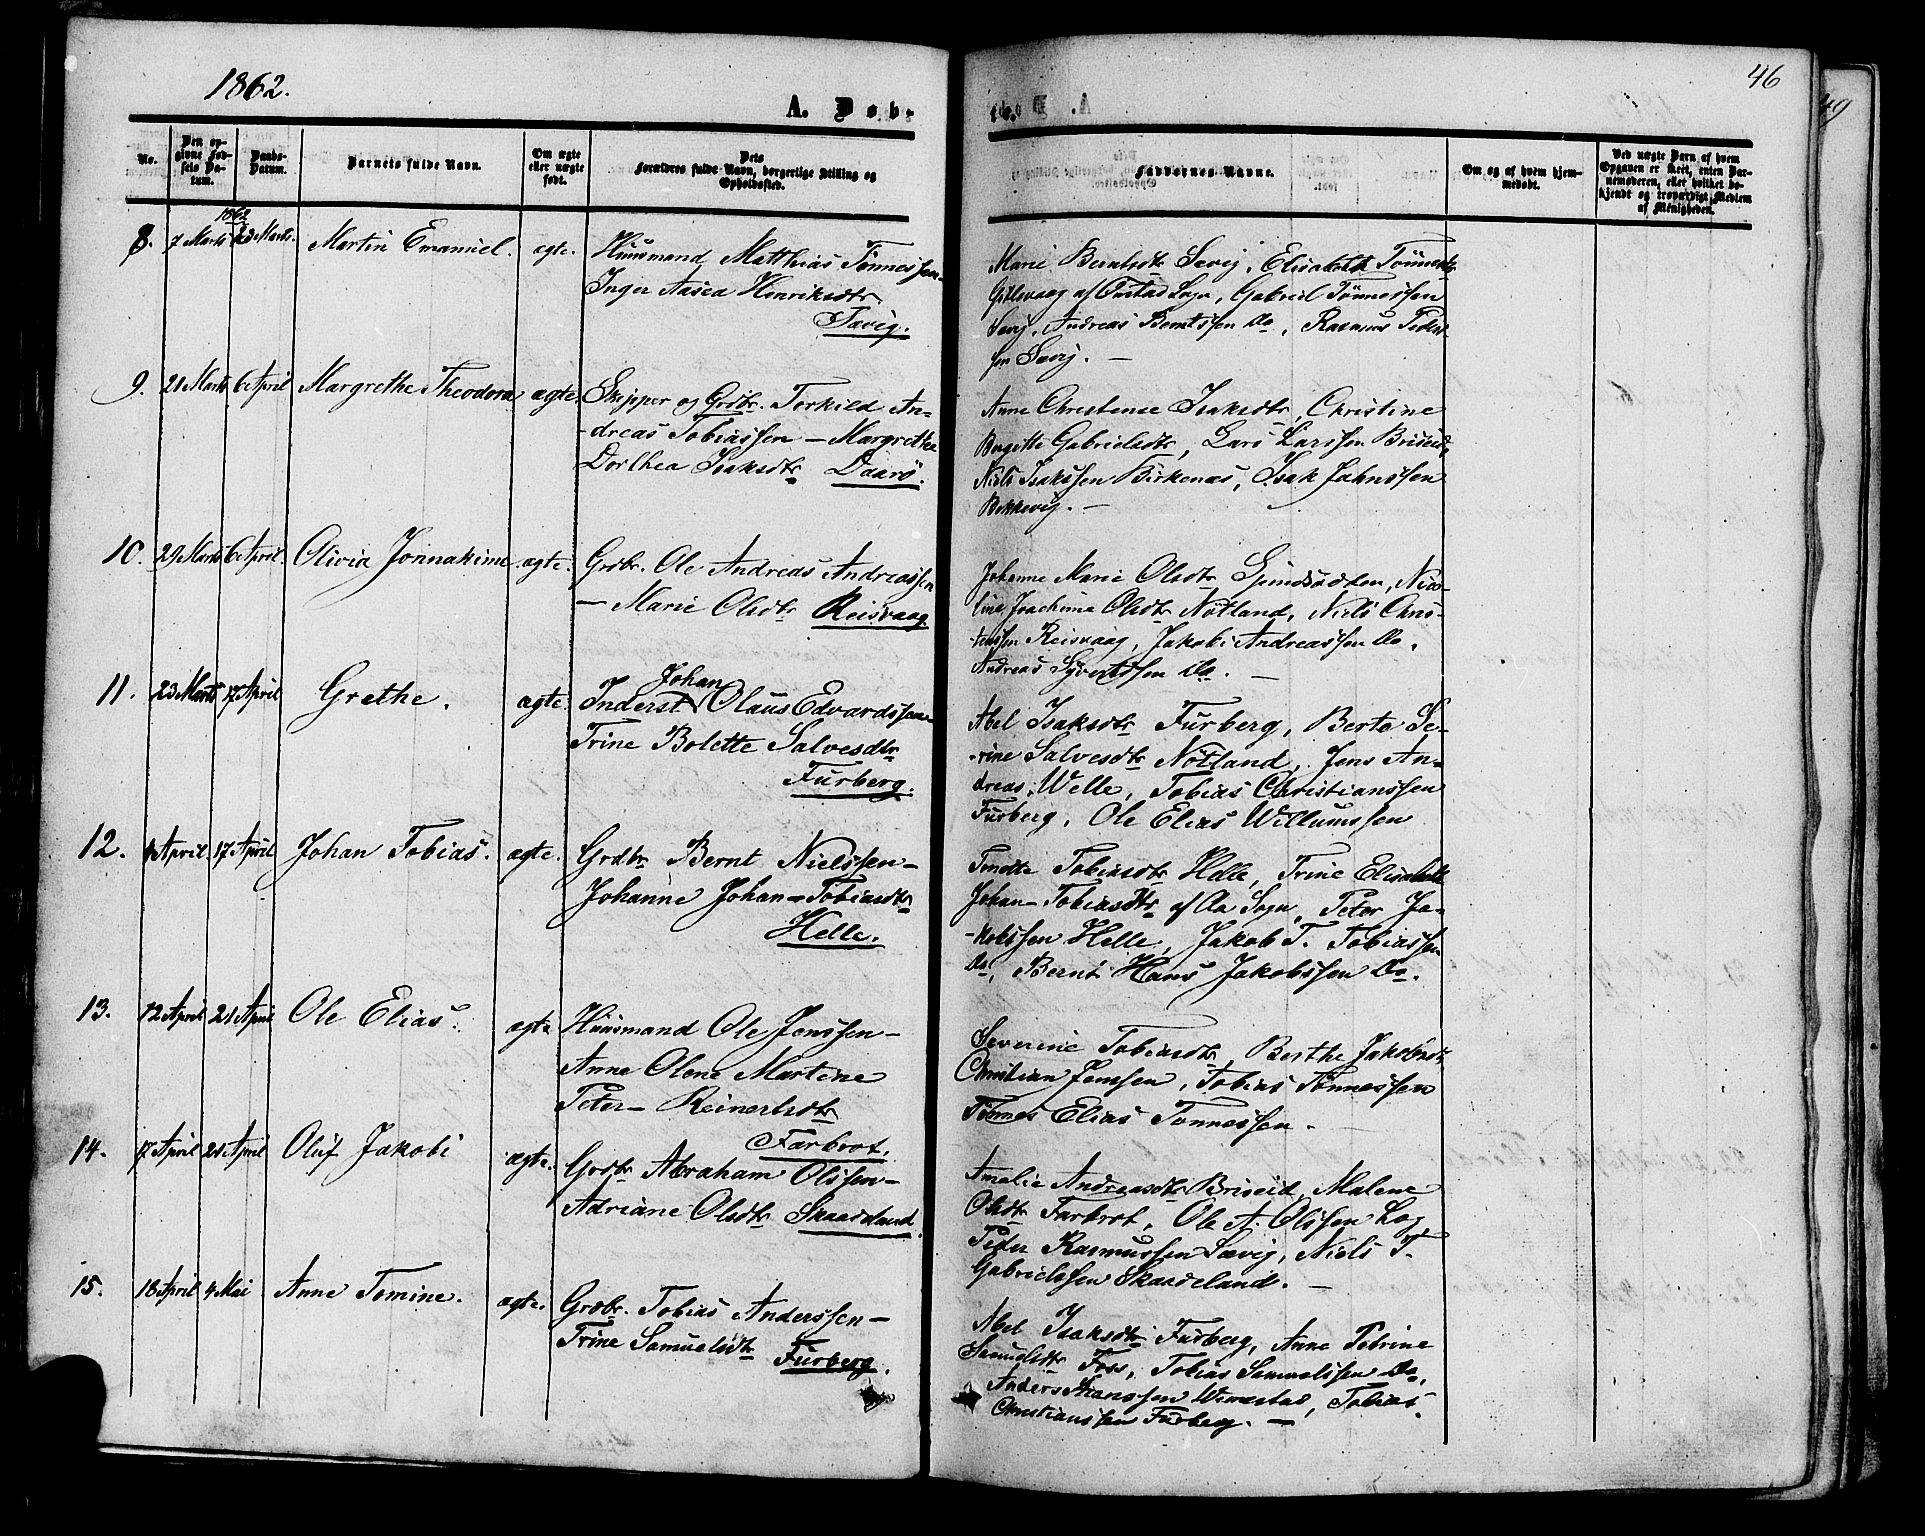 1862.
A. Døb-
te.
46
49
No.
Den op-
givne Fød-
sels Da-
tum.
Daabs-
Datum.
Barnets fulde Navn.
Om ægte
eller uægte
født.
Dets
Forældres fulde Navn, borgerlige Stilling og
Opholdssted.
Faddernes Navne.
Om og af hvem hjem-
medøbt.
Ved uægte Barn af hvem
Opgaven er skeet, enten Bar-
nemoderen, eller hvilket be-
kjendt og troværdigt Medlem
af Menigheden.
1862
8. 7 Marts 23 Marts. Martin Emanuel. ægte. Huusmand Matthias Tønnessen-
Inger Aasea Henriksdtr
Sævig.
Marie Berntsdtr Sævig, Elisabeth Tönnesdtr
Gitlevaag af Oustad Sogn, Gabriel Tønnessen
Sævig, Andreas Berntssen Do, Rasmus Peder-
sen Sævig. —
9. 21 Marts 6 April Margrethe Theodora ægte. Skipper og Grdbr. Torkild An-
-dreas Tobiassen — Margrethe
Dorthea Isaksdtr Daarø.
Anne Christense Isaksdtr, Christine
Birgitte Gabrielsdtr, Lars Larssen Briseid,
Niels Isakssen Birkenæs, Isak Jahnssen
Bekkevig. —
10. 29 Marts 6 April. Olivia Jonnakime ægte. Grdbr. Ole Andreas Andreassen
— Marie Olsdtr Reisvaag
Johanne Marie Olsdtr Spindsodden, Nico-
line Joachime Olsdtr Nötland, Niels Chris-
tenssen Reisvaag, Jakob Andreassen Do.
Andreas Syvertssen Do. —
11. 23 Marts 17 April Grethe. ægte. Inderst Johan Olaus Edvardssen
Trine Bolette Salvesdtr
Furberg.
Abel Isaksdtr Furberg, Berte Se-
-rine Salvesdtr Nötland, Jens An-
dreas Welle, Tobias Christianssen
Furberg, Ole Elias Willumssen
12. April. 17 April Johan Tobias. ægte. Grdbr Bernt Nielssen—
Johanne Johan-Tobiasdtr
Helle.
Tonette Tobiasdtr Helle, Trine Elisabeth
Johan-Tobiasdtr af Aa Sogn, Peter Ja-
-kobssen Helle, Jakob T. Tobiassen
Do, Bernt Hans Jakobssen Do.
13. 12 April 21 April Ole Elias. ægte Huusmand Ole Jenssen—
Anne Olene Martine
Peter-Reinertsdtr
Farbrot.
Severine Tobiasdtr, Berthe Jakobsdtr,
Christian Jenssen, Tobias Tønnessen
Tönnes Elias Tonnessen. —
14. 17 April 21 April Oluf Jakobi ægte. Grdbr Abraham Olssen—
Adriane Olsdtr Skaardland.
Amalie Andreasdtr Briseid, Malene
Olsdtr Farbrot, Ole A. Olssen Log,
Peder Rasmussen Sævig, Niels T.
Gabrielssen Skardeland. —
15. 18 April 4 Mai Anne Tomine. ægte. Grdbr. Tobias Anderssen—
Trine Samuelsdtr Furberg.
Abel Isaksdtr Furberg, Anne Petrine
Samuelsdtr Foss, Tobias Samuelssen Do,
Anders Hanssen Wirestad, Tobias
Christianssen Furberg. —